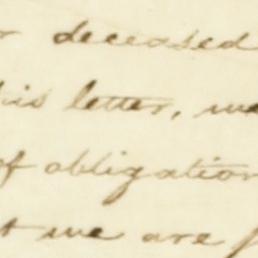 deceased
this letter, we
of obligation
we are